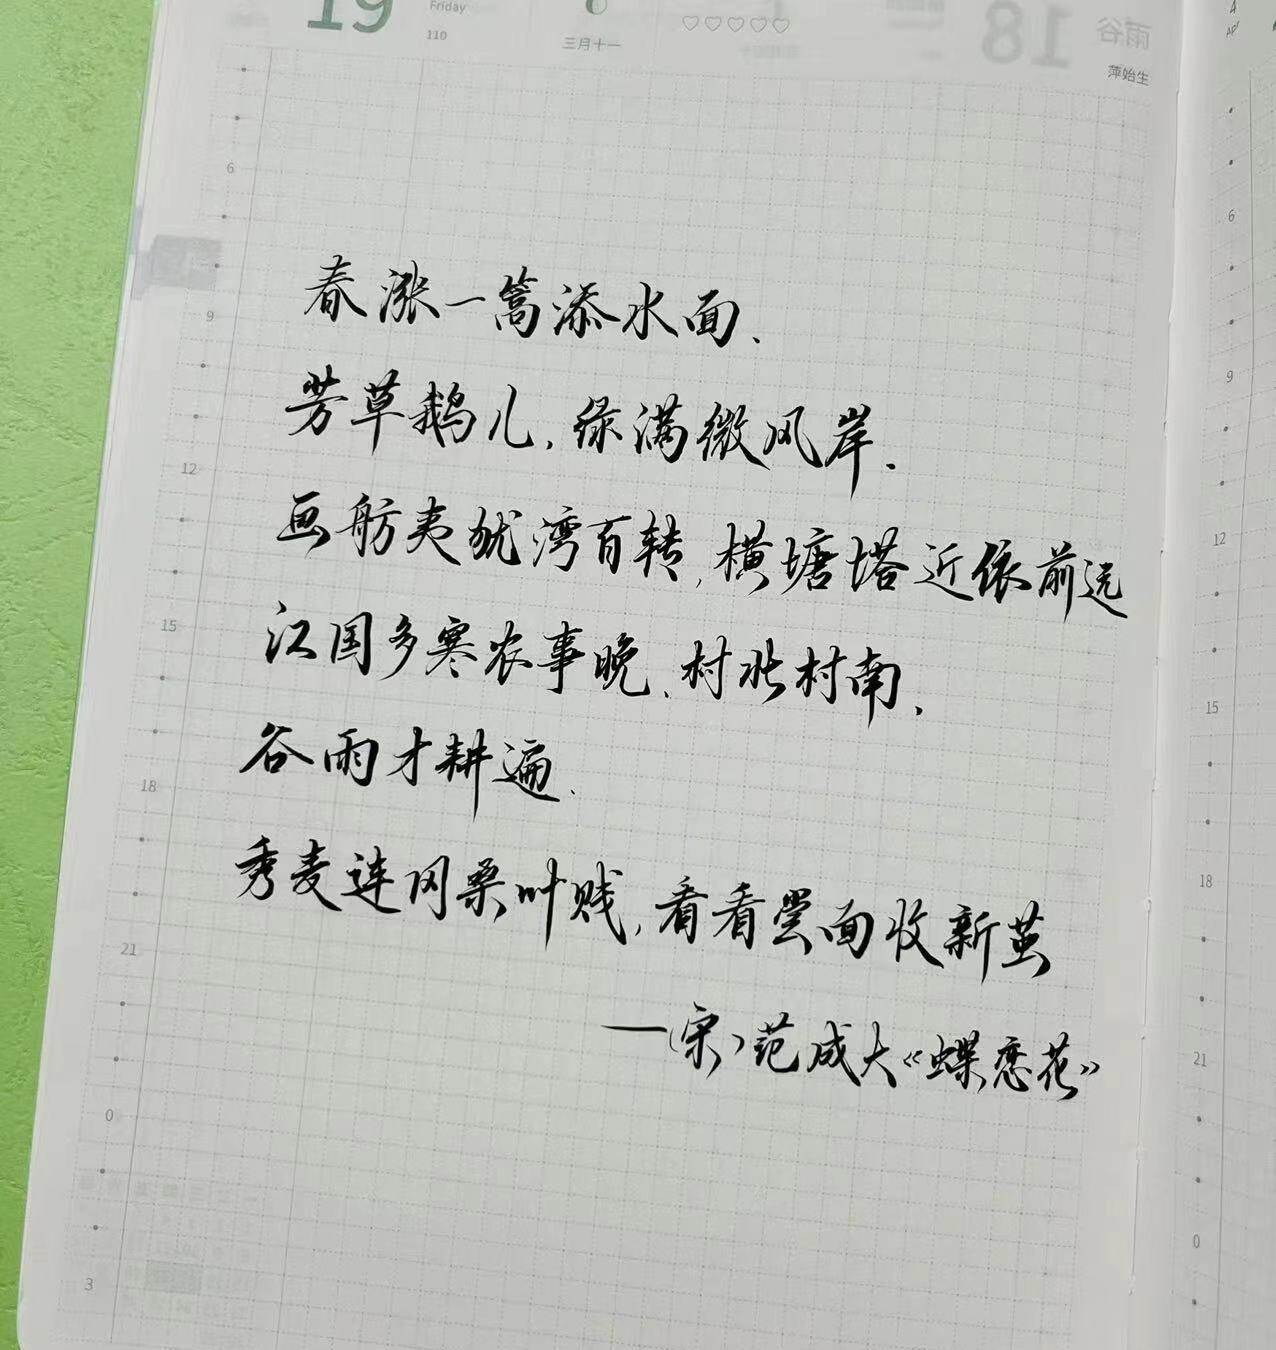 19
Friday
110
三月十一
谷雨
萍始生
6
9
12
15
18
21
0
3
春涨一篙添水面、
芳草鹅儿，绿满微风岸．
画舫夷犹湾百转，横塘塔近依前远
江国多寒农事晚、村北村南，
谷雨才耕遍、
秀麦连冈桑叶贱，看看尝面收新茧
—（宋）范成大《蝶恋花》
6
9
12
15
18
21
0